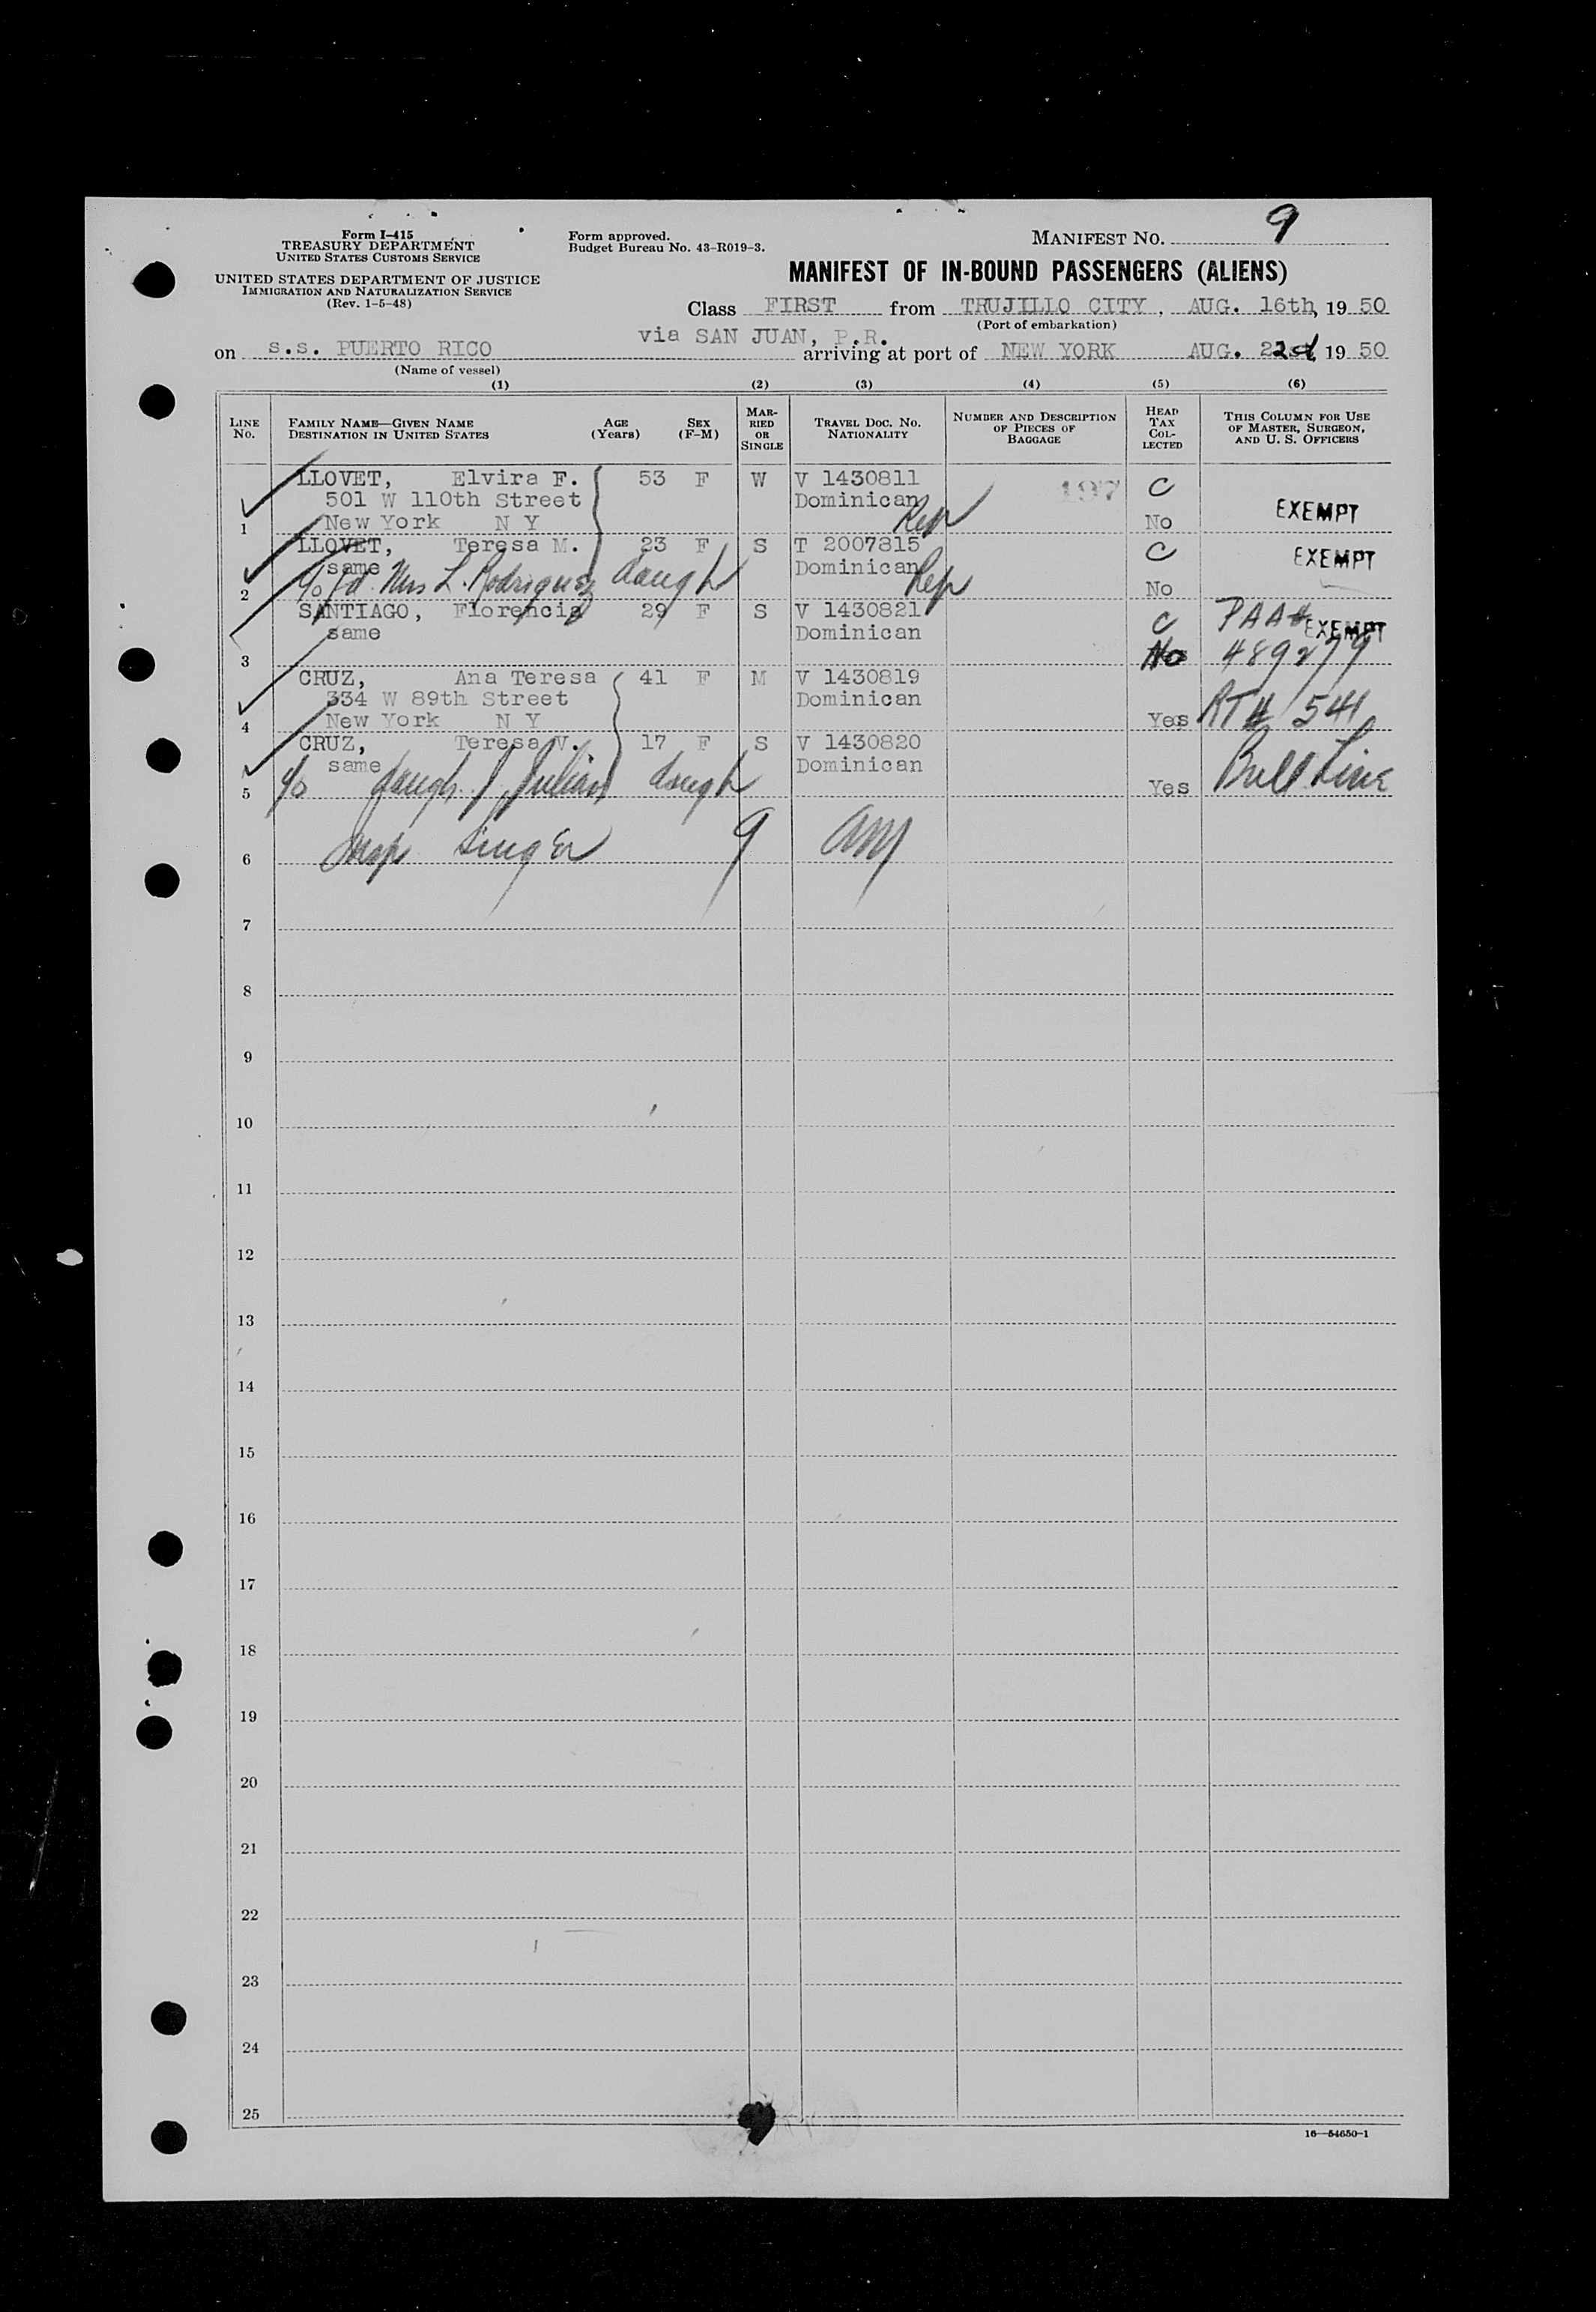 Form I-415
TREASURY DEPARTMENT
UNITED STATES CUSTOMS SERVICE
UNITED STATES DEPARTMENT OF JUSTICE
IMMIGRATION AND NATURALIZATION SERVICE
(Rev. 1-5-48)
Form approved.
Budget Bureau No. 43-R019-3.
MANIFEST NO. 9
MANIFEST OF IN-BOUND PASSENGERS (ALIENS)
Class FIRST from TRUJILLO CITY, AUG. 16th, 19 50
(Port of embarkation)
via SAN JUAN, P.R.
on s.s. PUERTO RICO arriving at port of NEW YORK AUG. 22d, 19 50
(Name of vessel)
(1) (2) (3) (4) (5) (6)
LINE NO. FAMILY NAME—GIVEN NAME DESTINATION IN UNITED STATES AGE (Years) SEX (F-M) MARRIED OR SINGLE TRAVEL DOC. NO. NATIONALITY NUMBER AND DESCRIPTION OF PIECES OF BAGGAGE HEAD TAX COLLECTED THIS COLUMN FOR USE OF MASTER, SURGEON, AND U. S. OFFICERS
LLOVET, Elvira F. 53 F W V 1430811 197 C
501 W 110th Street Dominican Rep EXEMPT
1 New York N Y No
LLOVET, Teresa M. 23 F S T 2007815 C EXEMPT
same Dominican Rep
2 c/o Mrs L. Rodriguez daugh No
SANTIAGO, Florencia 29 F S V 1430821 C PAA# EXEMPT
same Dominican
3 No 489279
CRUZ, Ana Teresa 41 F M V 1430819
334 W 89th Street Dominican
4 New York N Y Yes RT# 541
CRUZ, Teresa V. 17 F S V 1430820
same Dominican
5 c/o daugh J. Julian daugh Yes Bull Line
6 Insp Singer 9
7
8
9
10
11
12
13
14
15
16
17
18
19
20
21
22
23
24
25
16—54650-1